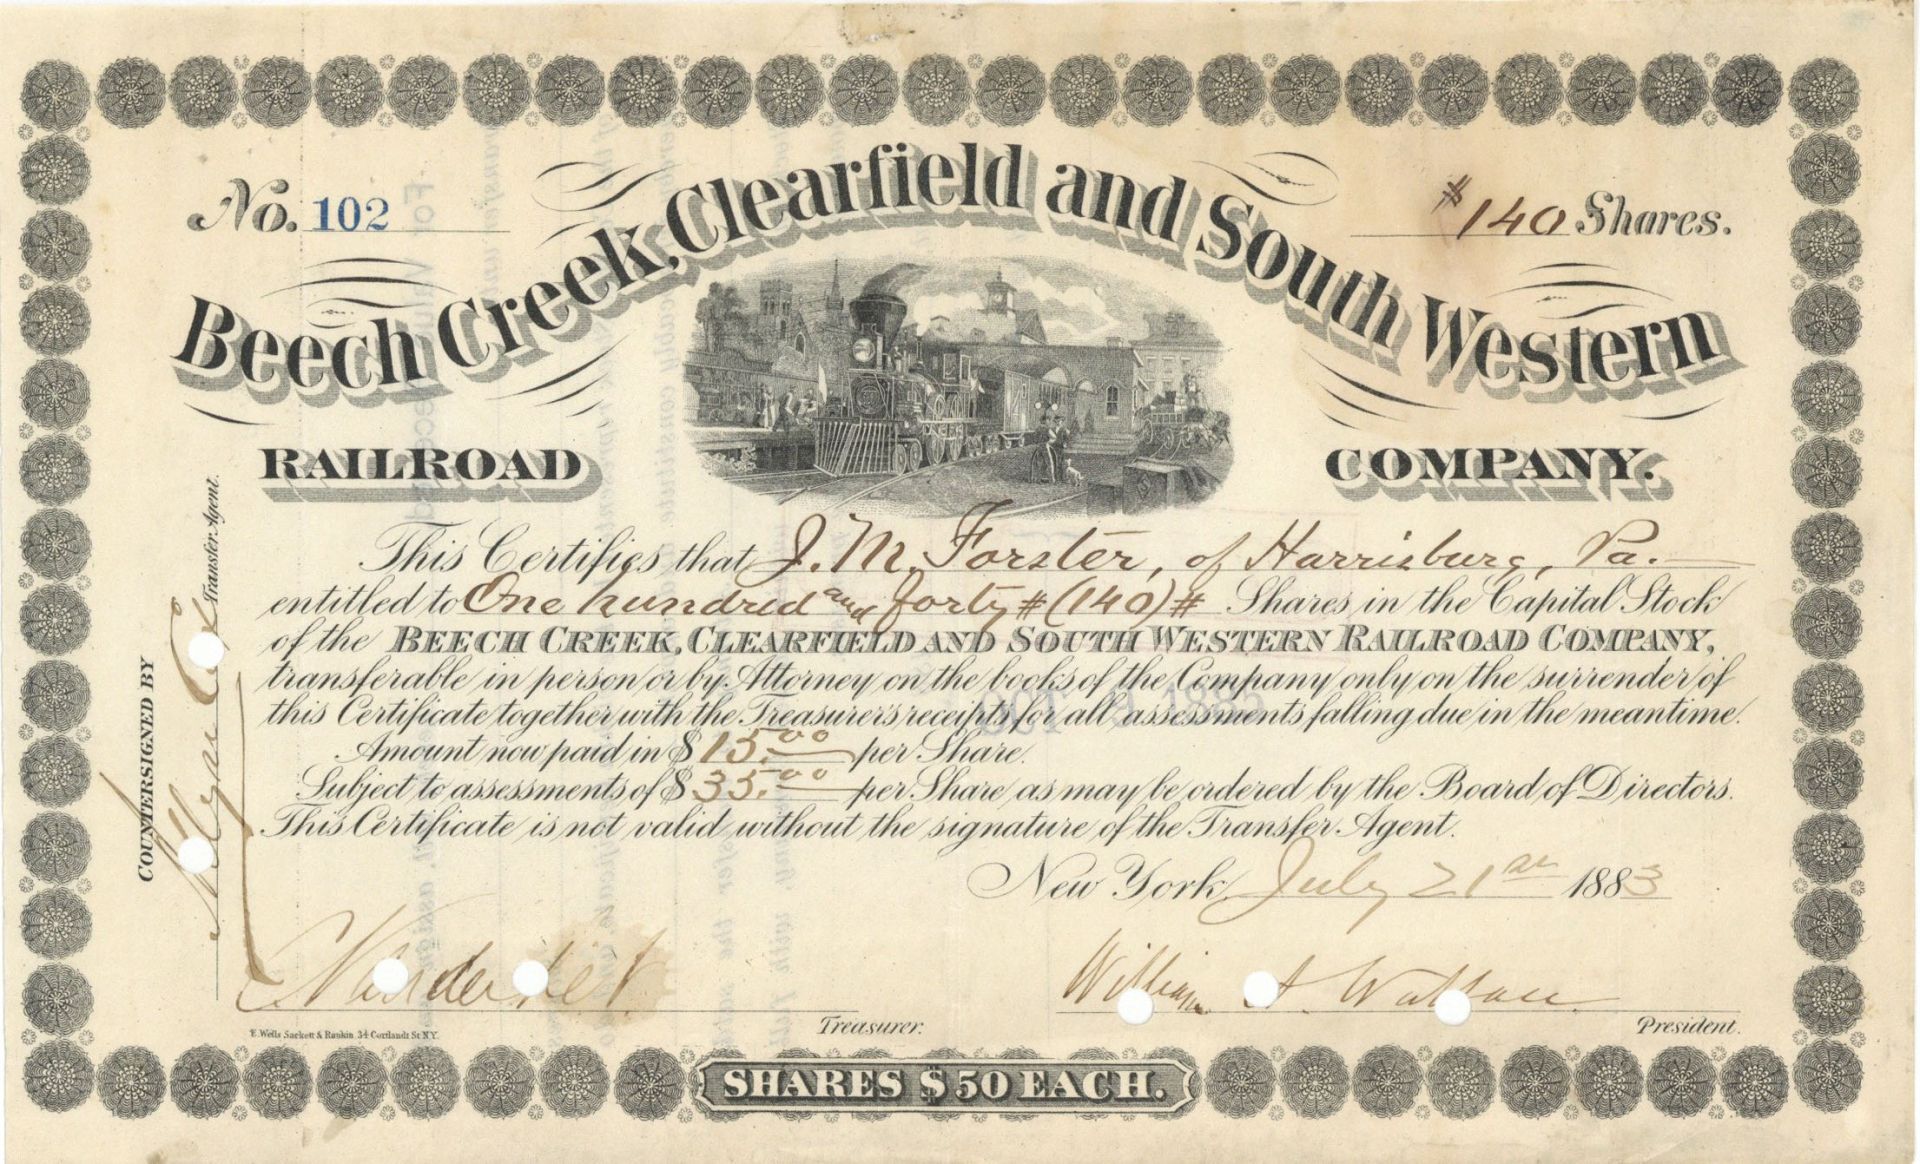 No. 102
# 140 Shares.
Beech Creek, Clearfield and South Western
RAILROAD COMPANY.
This Certifies that J. M. Forster, of Harrisburg, Pa.
entitled to One hundred and forty # (140) # Shares in the Capital Stock
of the BEECH CREEK, CLEARFIELD AND SOUTH WESTERN RAILROAD COMPANY,
transferable in person or by Attorney on the books of the Company only on the surrender of
this Certificate together with the Treasurer's receipts for all assessments falling due in the meantime.
Amount now paid in $15.00 per Share.
Subject to assessments of $35.00 per Share as may be ordered by the Board of Directors.
This Certificate is not valid without the signature of the Transfer Agent.
New York, July 21st 1883
COUNTERSIGNED BY
Transfer Agent.
C Vanderbilt
Treasurer.
William A Wallace
President.
E. Wells Sackett & Rankin 34 Cortlandt St N.Y.
SHARES $50 EACH.